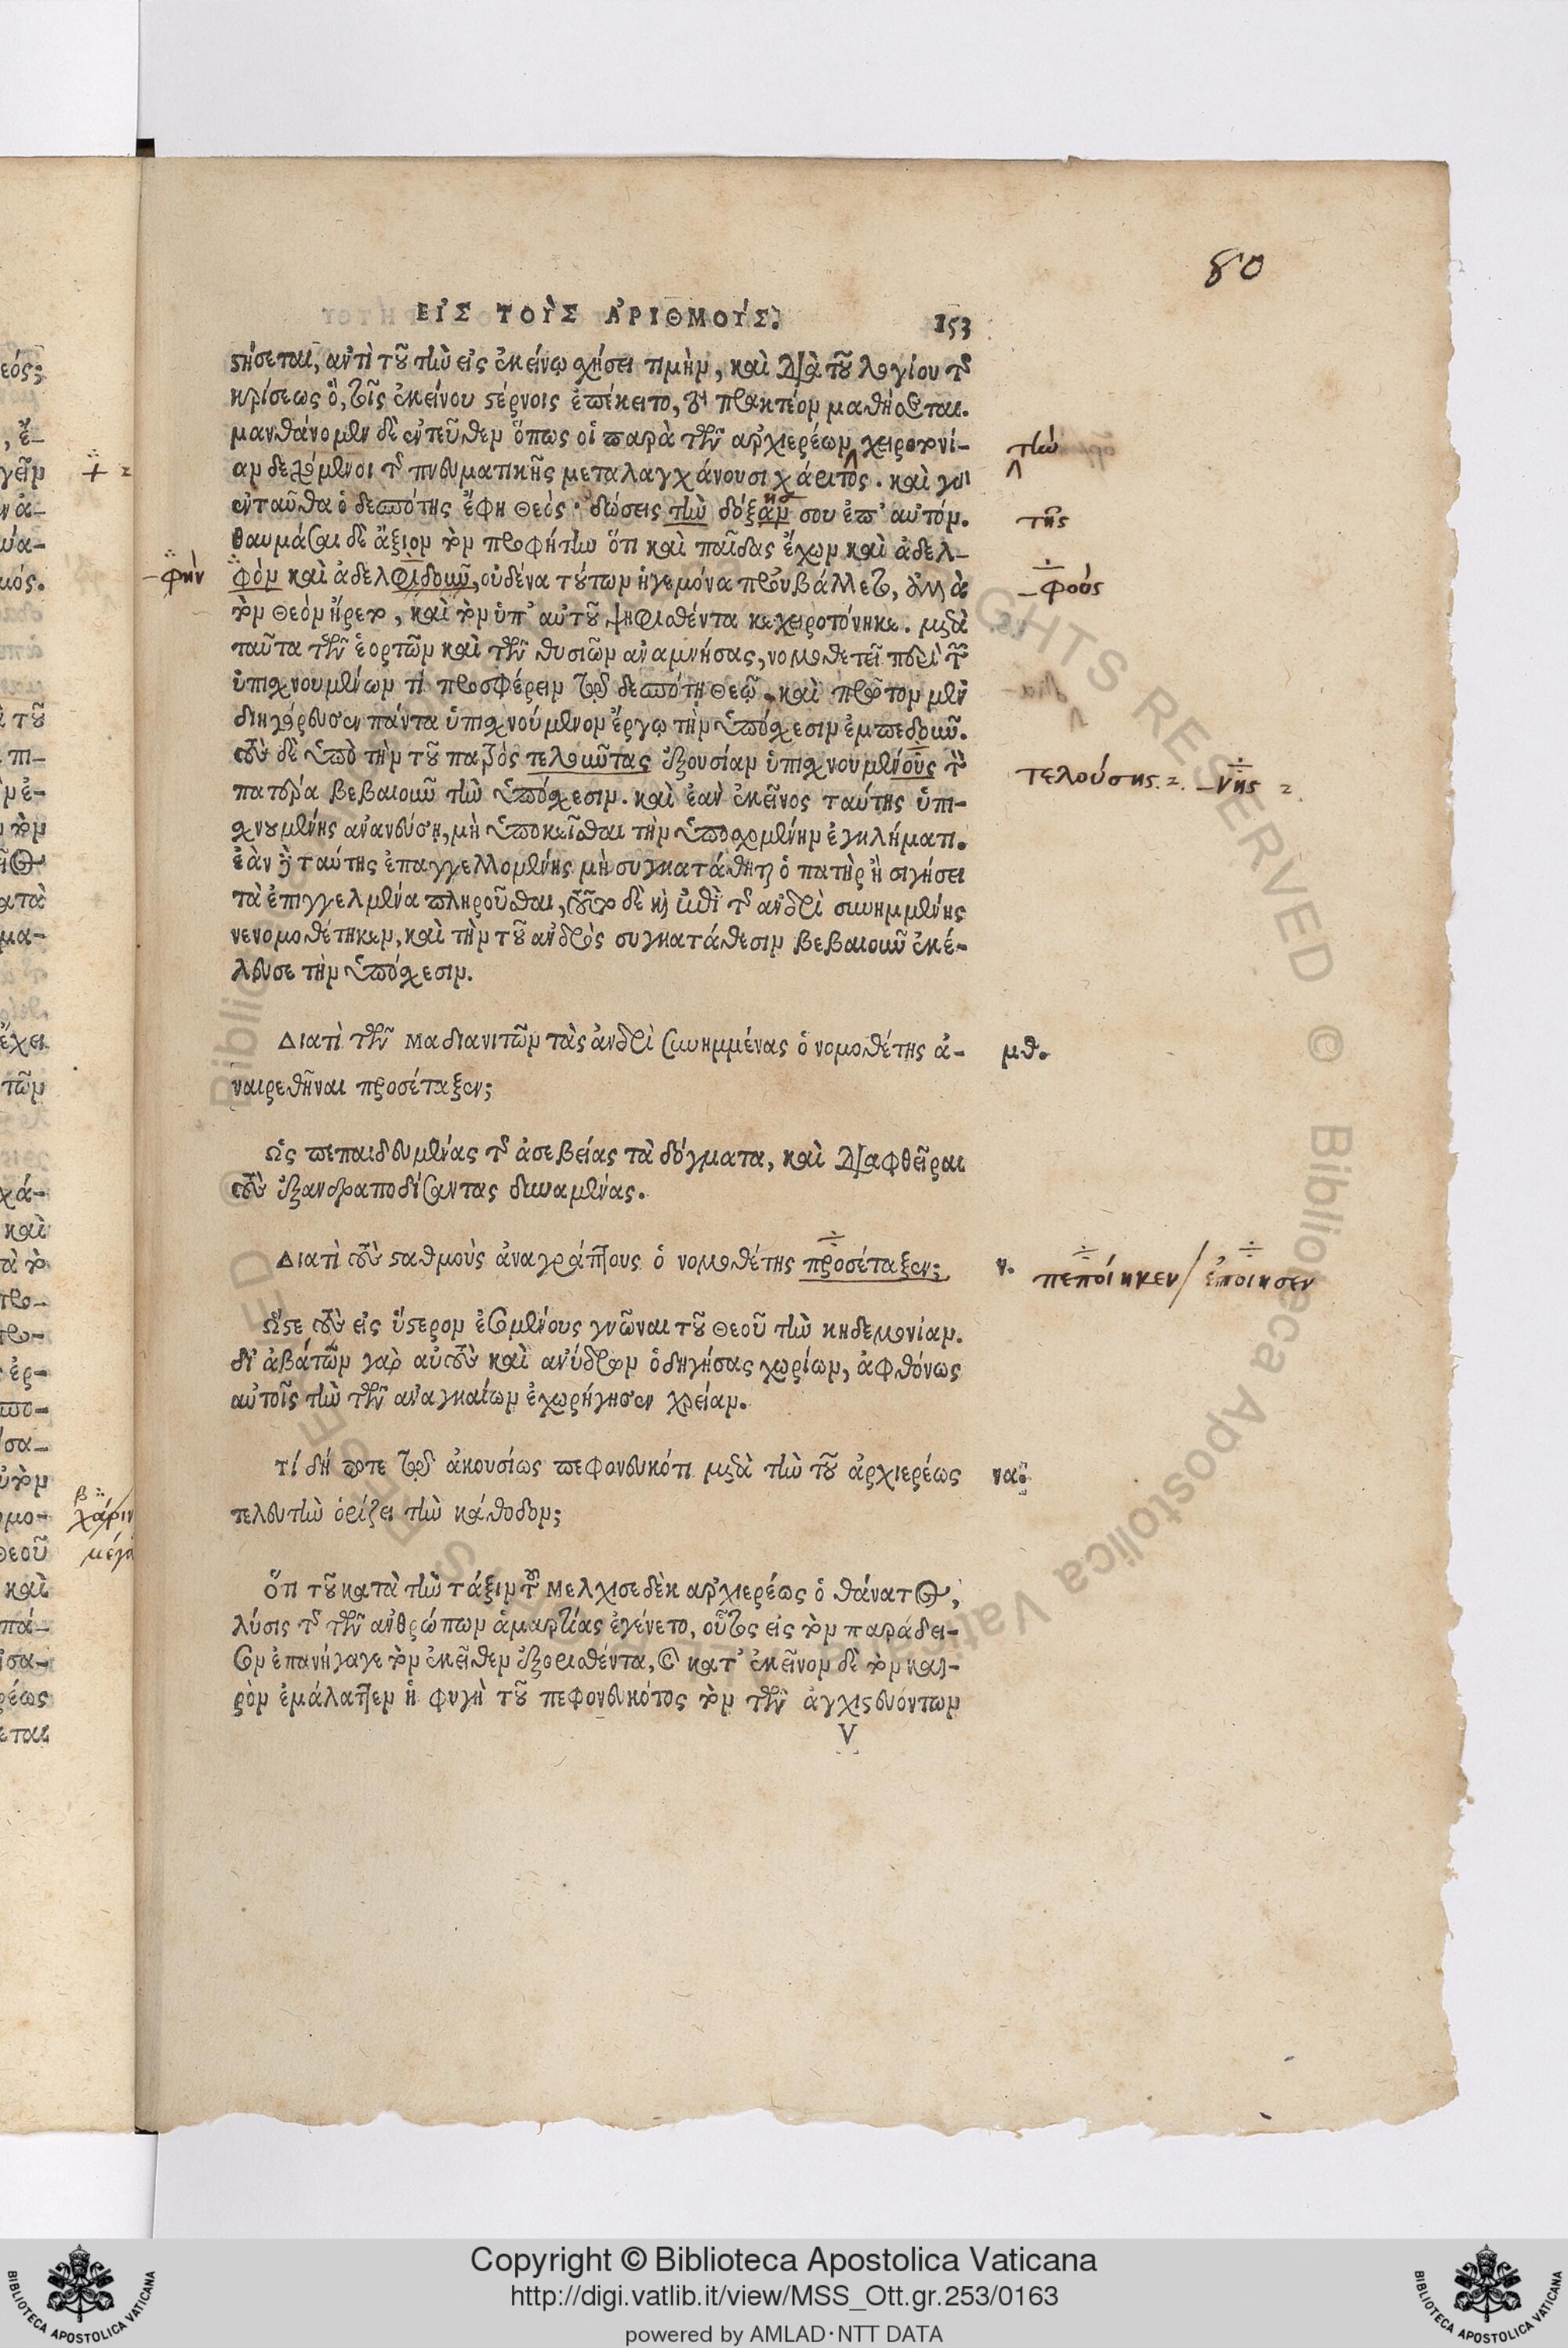 80
ΕἸΣ ΤΟῪΣ ἈΡΙΘΜΟΎΣ. 153
στήσεται, ἀντὶ τοῦ τὴν εἰς ἐκείνῳ σχήσει τιμὴν, καὶ διὰ τοῦ λογίου τῆς
κρίσεως ὃ, τοῖς ἐκείνου στέρνοις ἐπέκειτο, τὸ πρακτέον μαθήσεται.
μανθάνομεν δὲ ἐντεῦθεν ὅπως οἱ παρὰ τῶν ἀρχιερέων χειροτονί-
τὴν
αν δεχόμενοι τῆς πνευματικῆς μεταλαγχάνουσι χάριτος. καὶ γὰρ
ἐνταῦθα ὁ δεσπότης ἔφη θεὸς· δώσεις τὴν δόξαν σου ἐπ' αὐτόν.
τῆς
θαυμάσαι δὲ ἄξιον τὸν προφήτην ὅτι καὶ παῖδας ἔχων καὶ ἀδελ-
-φὴν φὸν καὶ ἀδελφιδοῦν, οὐδένα τούτων ἡγεμόνα προὐβάλλετο, ἀλλὰ
-φοὺς
τὸν θεὸν ἤρετο, καὶ τὸν ὑπ' αὐτοῦ ψηφισθέντα κεχειροτόνηκε. μετὰ
ταῦτα τῶν ἑορτῶν καὶ τῶν θυσιῶν ἀναμνήσας, νομοθετεῖ περὶ τῶν
ὑπισχνουμένων τὶ προσφέρειν τῷ δεσπότῃ θεῷ. καὶ πρῶτον μὲν
διηγόρευσεν πάντα ὑπισχνούμενον ἔργῳ τὴν ὑπόσχεσιν ἐμπεδοῦν.
τοὺς δὲ ὑπὸ τὴν τοῦ πατρὸς τελοῦντας ἐξουσίαν ὑπισχνουμένους τὸν
τελούσης. -νης
πατέρα βεβαιοῦν τὴν ὑπόσχεσιν. καὶ ἐὰν ἐκεῖνος ταύτης ὑπι-
σχνουμένης ἀνανεύσῃ, μὴ ὑποκεῖσθαι τὴν ὑποσχομένην ἐγκλήματι.
ἐὰν δὲ ταύτης ἐπαγγελλομένης μὴ συγκατάθηται ὁ πατὴρ ἢ σιγήσει
τὰ ἐπηγγελμένα πληροῦσθαι, τοῦτο δὲ καὶ ἐπὶ τῆς ἀνδρὶ συνημμένης
νενομοθέτηκεν, καὶ τὴν τοῦ ἀνδρὸς συγκατάθεσιν βεβαιοῦν ἐκέ-
λευσε τὴν ὑπόσχεσιν.
Διατὶ τῶν Μαδιανιτῶν τὰς ἀνδρὶ συνημμένας ὁ νομοθέτης ἀ- μθ.
ναιρεθῆναι προσέταξεν;
Ὡς πεπαιδευμένας τῆς ἀσεβείας τὰ δόγματα, καὶ διαφθεῖραι
τοὺς ἐξανδραποδίσαντας δυναμένας.
Διατὶ τοὺς σταθμοὺς ἀναγράπτους ὁ νομοθέτης προσέταξεν; ν. πεποίηκεν/ ἐποίησεν
Ὥστε τοὺς εἰς ὕστερον ἐσομένους γνῶναι τοῦ θεοῦ τὴν κηδεμονίαν.
δι' ἀβάτων γὰρ αὐτοὺς καὶ ἀνύδρων ὁδηγήσας χωρίων, ἀφθόνως
αὐτοῖς τὴν τῶν ἀναγκαίων ἐχωρήγησεν χρείαν.
Τί δή ποτε τῷ ἀκουσίως πεφονευκότι μετὰ τὴν τοῦ ἀρχιερέως να.
τελευτὴν ὁρίζει τὴν κάθοδον;
Ὅτι τοῦ κατὰ τὴν τάξιν τοῦ Μελχισεδὲκ ἀρχιερέως ὁ θάνατος,
λύσις τῆς τῶν ἀνθρώπων ἁμαρτίας ἐγένετο, οὗτος εἰς τὸν παράδει-
σον ἐπανήγαγε τὸν ἐκεῖθεν ἐξορισθέντα, καὶ κατ' ἐκεῖνον δὲ τὸν και-
ρὸν ἐμάλαττεν ἡ φυγὴ τοῦ πεφονευκότος τὸν τῶν ἀγχιστευόντων
V
Copyright © Biblioteca Apostolica Vaticana
http://digi.vatlib.it/view/MSS_Ott.gr.253/0163
powered by AMLAD·NTT DATA